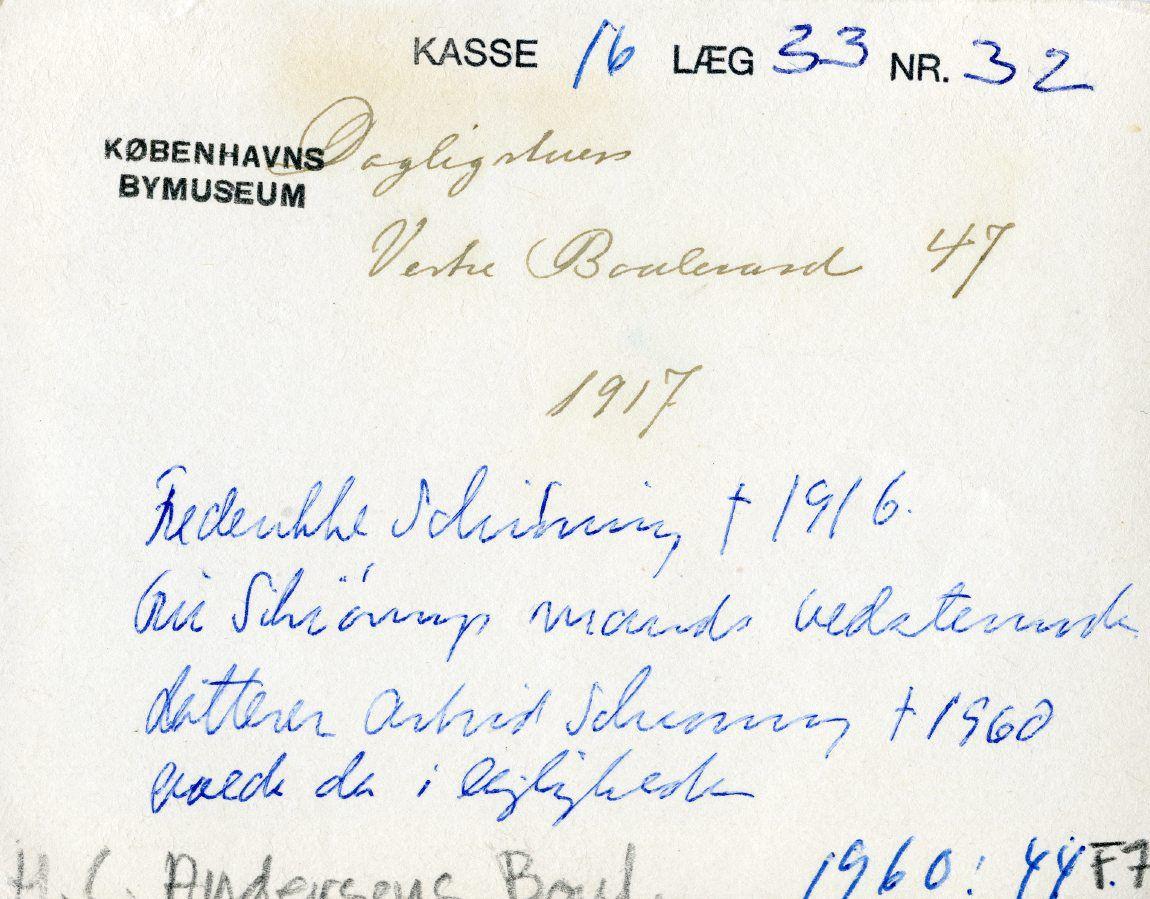 KASSE 16 LÆG 33 NR. 32
KØBENHAVNS
BYMUSEUM
Dagligstuen
Vestre Boulevard 47
1917
Frederikke Schiönning † 1916.
Schiönnings mands vedstemoder
datteren Astrid Schiønning † 1960
da i lejligheden
H. C. Andersens Boul.
1960: 44 F.7